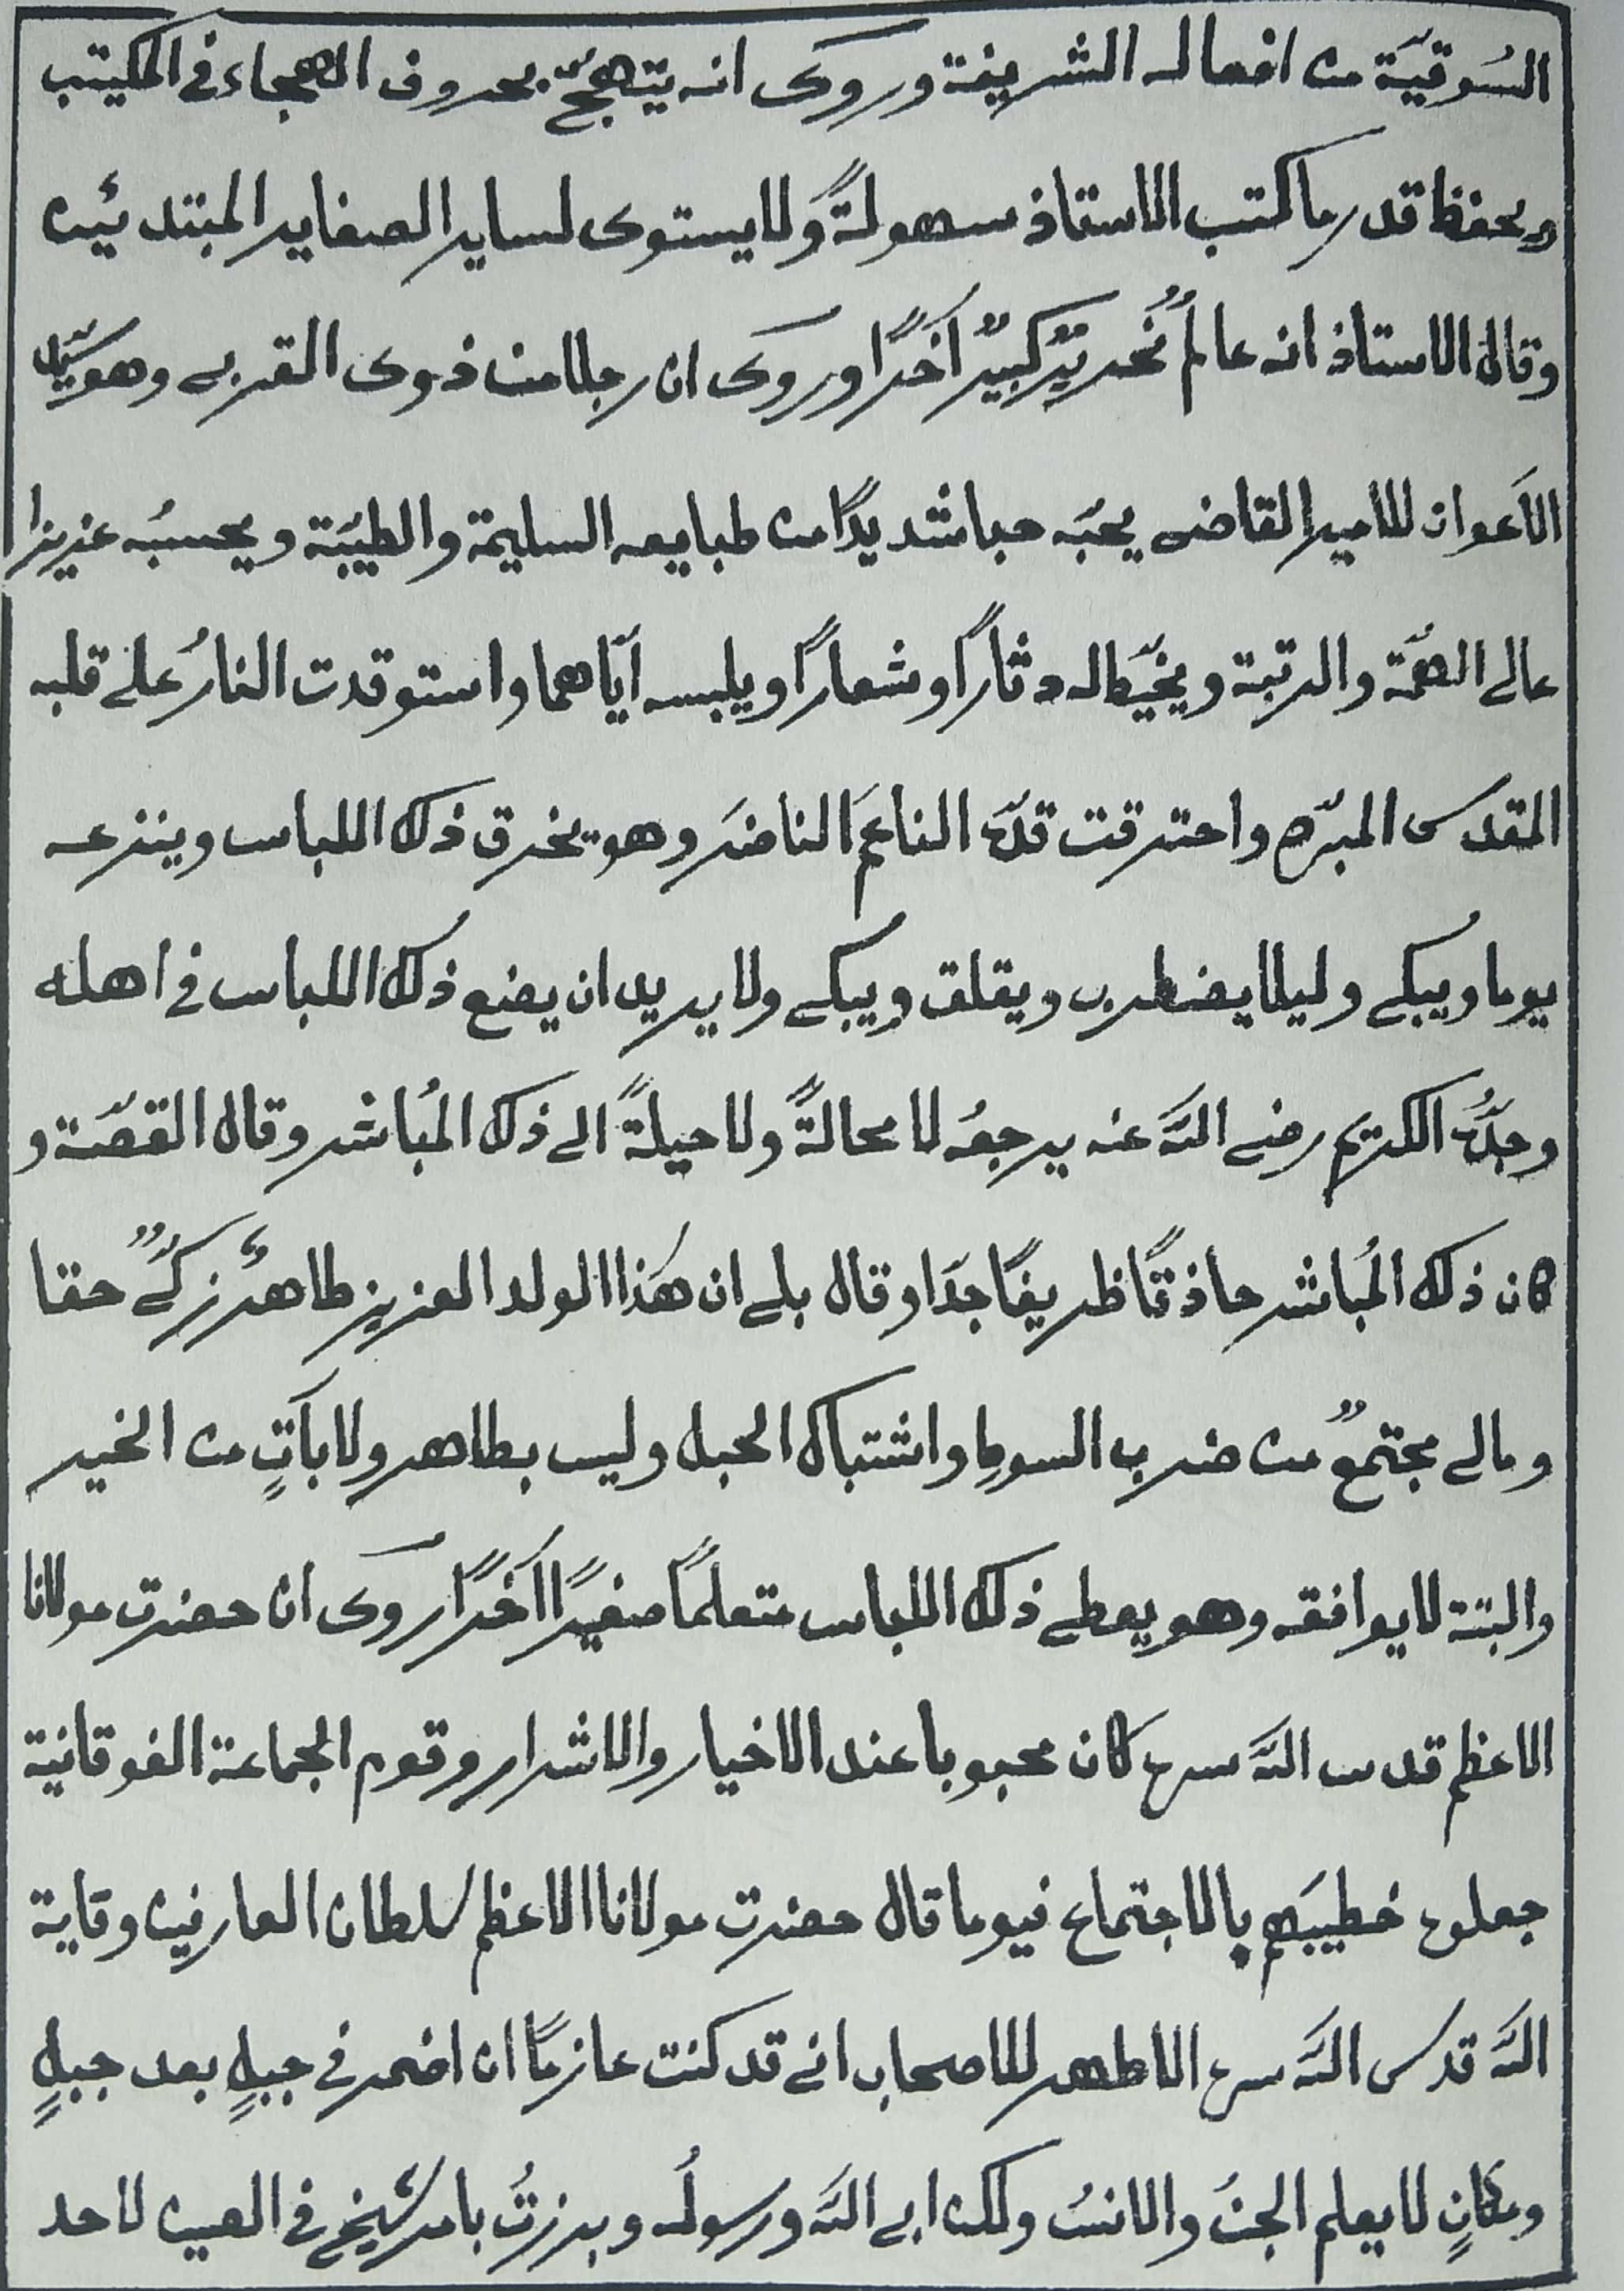 السُوقيّة من افعاله الشريفة وروى انه يتهجّى بحروف الهجاء في المكتب
ويحفظ قدر ما كتب الاستاذ سهولةً ولا يستوى لساير الصغاير المبتدئين
وقال الاستاذ انه عالمٌ نُحريرٌ كبيرٌ آخرًا وروى ان رجلا من ذوى القربى وهو
الاَعوان للامير القاضى يحبّه حبا شديدًا من طبايعه السليمة والطيّبة ويحسبُه عزيزا
عالى الهمّة والرتبة ويخيّط له دثارًا وشعارًا ويلبسه ايّاهما واستوقدت النارُ على قلبه
المقدسى المبرّه واحترقت قدّه الناعمَ الناضرَ وهو يخرق ذلك اللباس وينزعه
يوما ويبكى وليلا يضطرب ويقلق ويبكى ولا يريد ان يضع ذلك اللباس في اهله
وجدُّه الكريم رضى اللّه عنه يرجعُه لا محالةً ولا حيلةً الى ذلك المُباشر وقال القصّة و
كان ذلك المُباشر حاذقًا ظريفًا جدّا وقال بلى ان هٰذا الولد العزيز طاهرٌ زكىٌّ حقا
ومالى مجتمعٌ من ضرب السوط واشتباك الحبل وليس بطاهر ولا باَتٍ من الخير
والبتّة لا يوافقه وهو يعطى ذلك اللباس متعلمًا صغيرًا آخرًا روى ان حضرت مولانا
الاعظم قدس اللّه سره كان محبوبا عند الاخيار والاشرار وقوم الجماعة الفوقانية
جعلوه خطيبَهم بالاجتماع فيوما قال حضرت مولانا الاعظم سلطان العارفين وقاية
اللّه قدس اللّه سره الاطهر للاصحاب انى قد كنت عازمًا ان اضمر في جبلٍ بعد جبلٍ
ومكانٍ لا يعلم الجنُ والانسُ ولكن ابى اللّه ورسولُه وبرزتُ بامر شيخى في العين لاحد